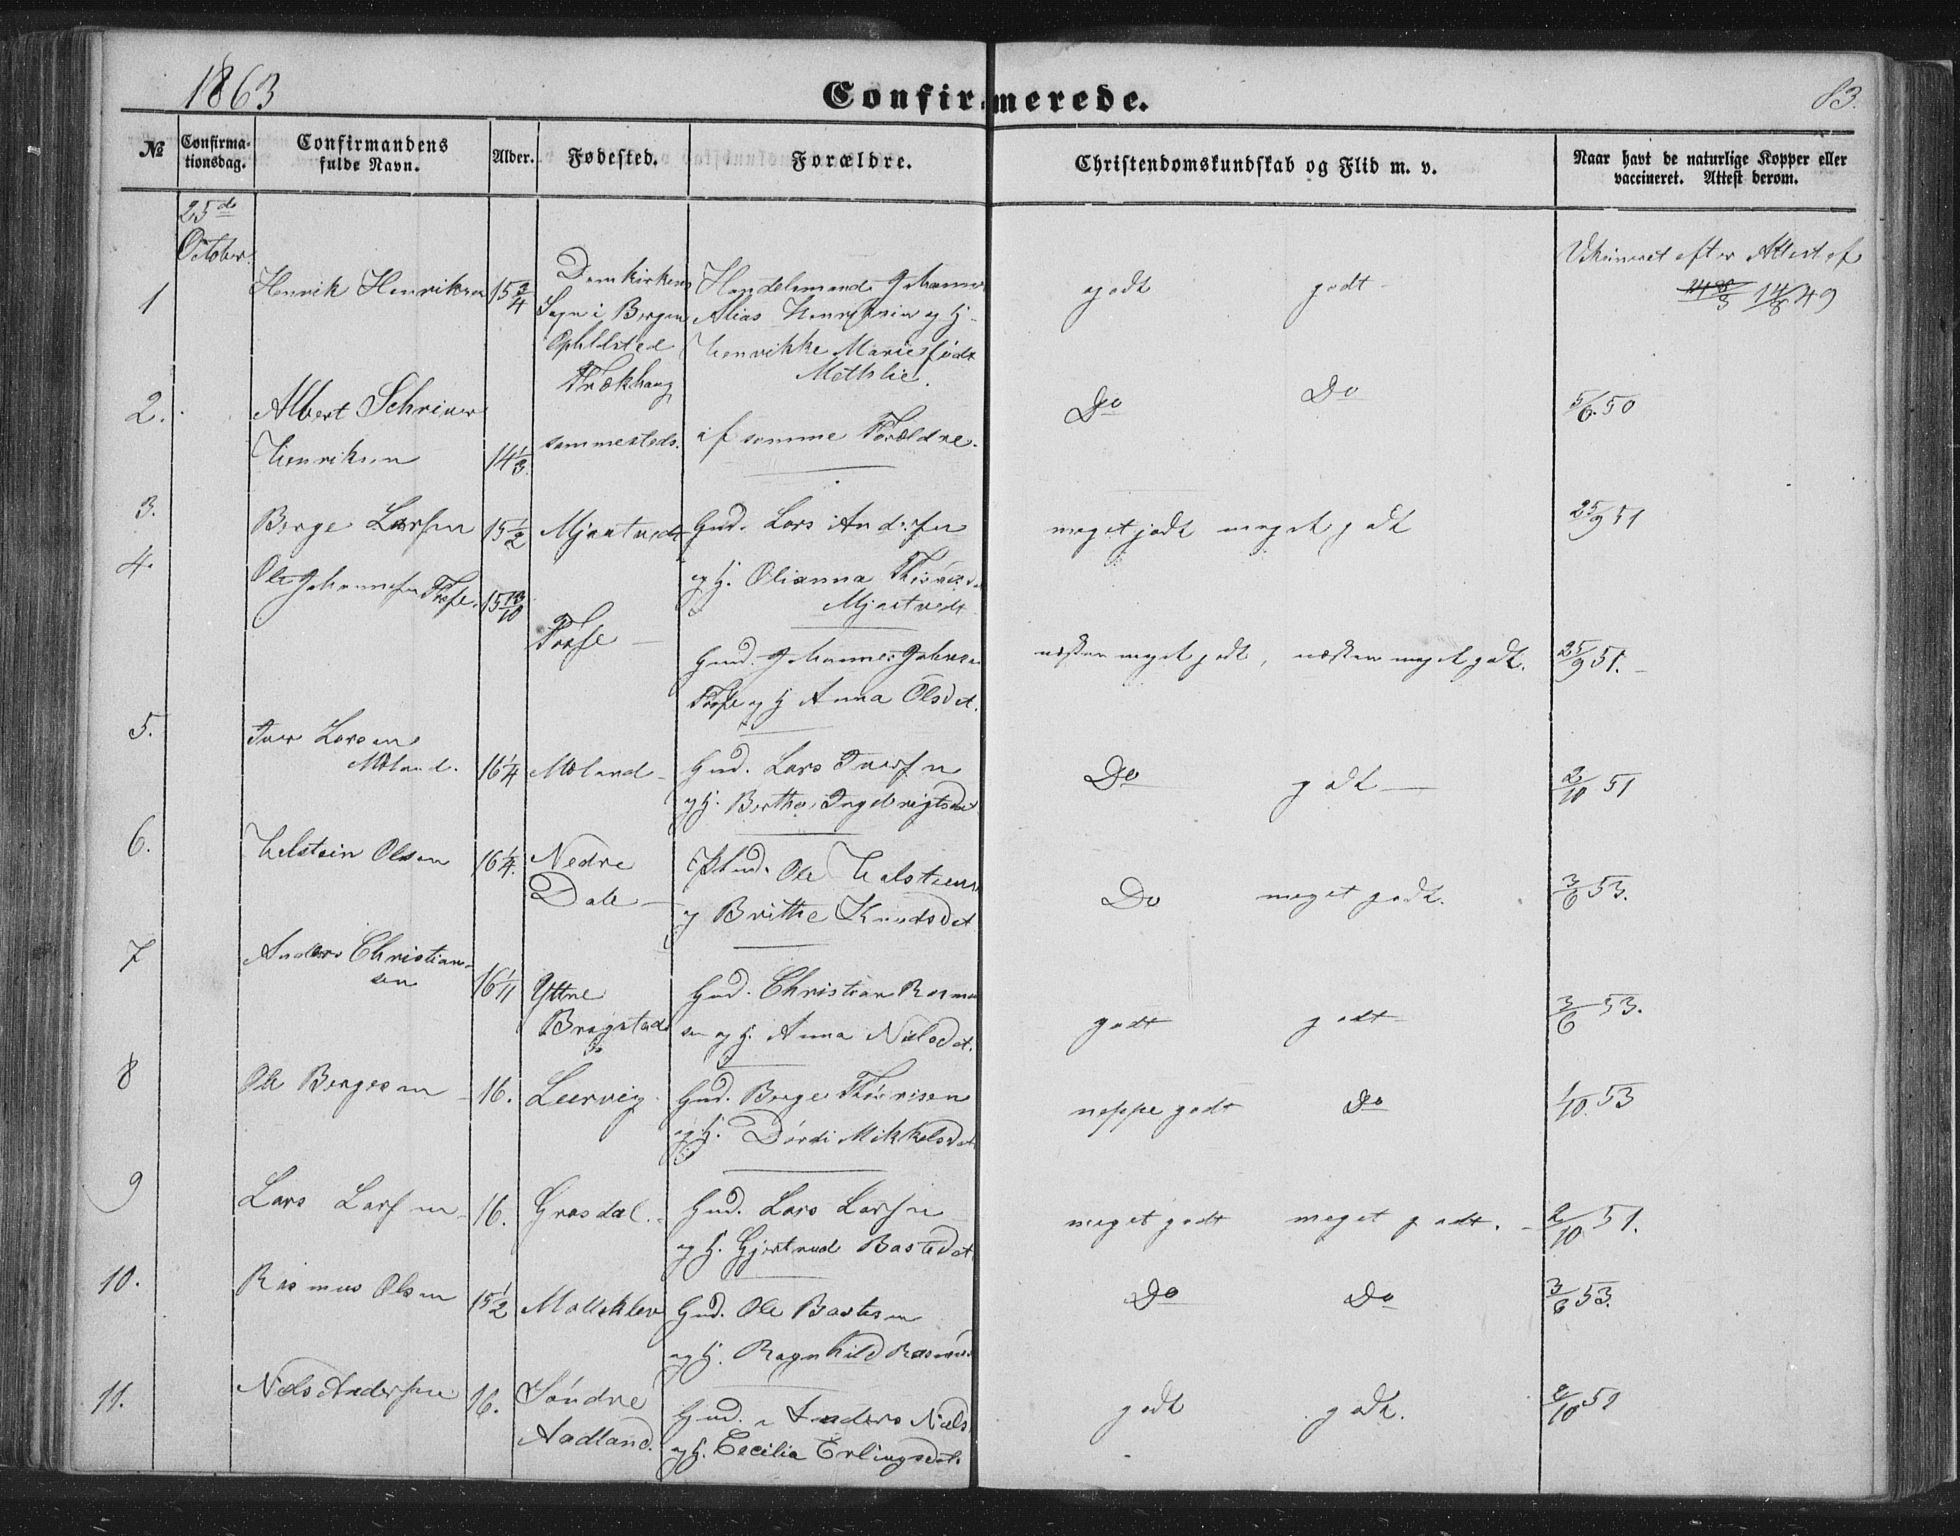 1863
Confirmerede.
83.
№
Confirma-
tionsdag.
Confirmandens
fulde Navn.
Alder.
Fødested.
Forældre.
Christendomskundskab og Flid m. v.
Naar havt de naturlige Kopper eller
vaccineret. Attest derom.
25de
October.
1
Henrik Henriksen
15 3/4
Domkirkens
Sogn i Bergen
Opholdsted
Handelsmand Johannes
Alias Henriksen og H.
Henrikke Marie født
godt
godt
efter Attest af
14/8 49
2.
Albert
Henriksen
14 1/3.
sammesteds.
af samme Forældre.
Do
Do
5/6. 50
3.
Berge Larsen
15 1/2
Mjaatvedt
Gmd. Lars Andersen
og H. Olianna
Mjaatvedt
meget godt meget godt
25/9 51
4.
Ole Johannesen Fosse.
15
Fosse
Gmd. Johannes Johnsen
Fosse og H. Anna Olsdat.
næsten meget godt, næsten meget godt.
25/9 51.
5.
Iver Larsen
Mæland.
16 1/4
Mæland
Gmd. Lars Iversen
og H. Berthe Ingebrigtsdat
Do
godt
2/10 51
6.
Helstein Olsen
16 1/4.
Nedre
Dale
Ole Halsteins
og Brithe Knudsdat
Do
meget godt.
3/6 53.
7
Anders Christian-
sen
16 1/11
Yttre
Brogstad
Gmd. Christian Rasmu
sen og H. Anna Nielsdat.
godt
godt
3/6 53.
8
Ole Bergesen
16.
Leervig
Gmd. Berge
og H. Dordi Mikkelsdat
neppe godt
Do
1/10. 53
9
Lars Larsen
16.
Grasdal.
Gmd. Lars Larsen
og H. Gjertrud Bastedat
meget godt
meget godt.
2/10 51.
10.
Rasmus Olsen
15 1/2
Gmd. Ole Bastesen
og H. Ragnhild Rasmus
Do
Do
3/6 53.
11.
Nels Andersen
16.
Söndre
Aadland.
Gmd. Anders Niels
og H. Cecilia Erlingsdat.
godt
godt.